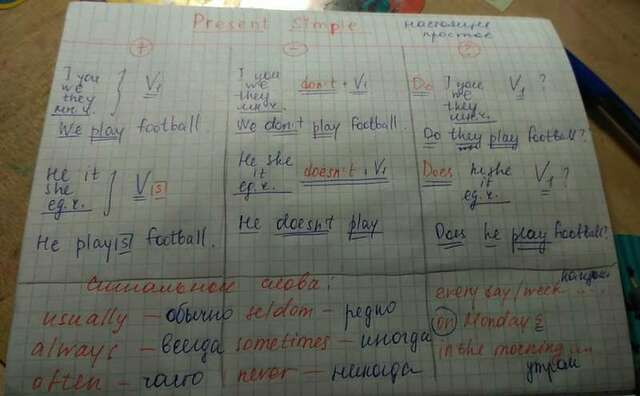 Present Simple
настоящее простое
+
I you
we
they
мн.ч.
V1
We play football
He it
she
ед.ч.
V s
He plays football.
-
I you
we
they
мн.ч.
don't + V1
We don't play football.
He she
it
ед.ч.
doesn't + V1
He doesn't play
?
Do I you
we
they
мн.ч.
V1 ?
Do they play football?
Does he she
it
ед.ч.
V1 ?
Does he play football?
сигнальные слова:
usually - обычно
always - всегда
often - часто
seldom - редко
sometimes - иногда
never - никогда
every day/week ....
on Mondays
in the morning ...
утром